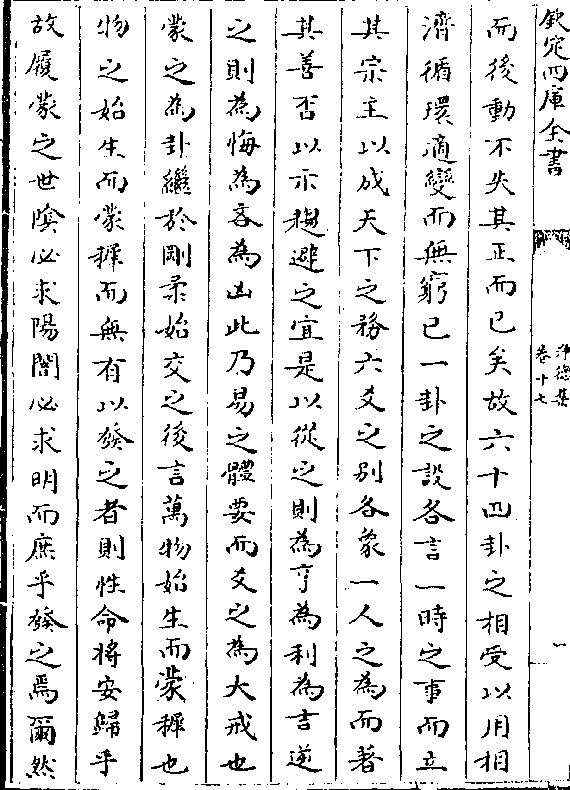 欽定四庫全書
淨德集
卷十七
一
而後動不失其正而已矣故六十四卦之相受以用相
濟循環適變而無窮已一卦之設各言一時之事而立
其宗主以成天下之務六爻之別各象一人之為而著
其善否以示趨避之宜是以從之則為亨為利為吉逆
之則為悔為吝為凶此乃易之體要而爻之為大戒也
蒙之為卦繼於剛柔始交之後言萬物始生而蒙穉也
物之始生而蒙穉而無有以發之者則性命將安歸乎
故履蒙之世陰必求陽闇必求明而庶乎發之焉爾然